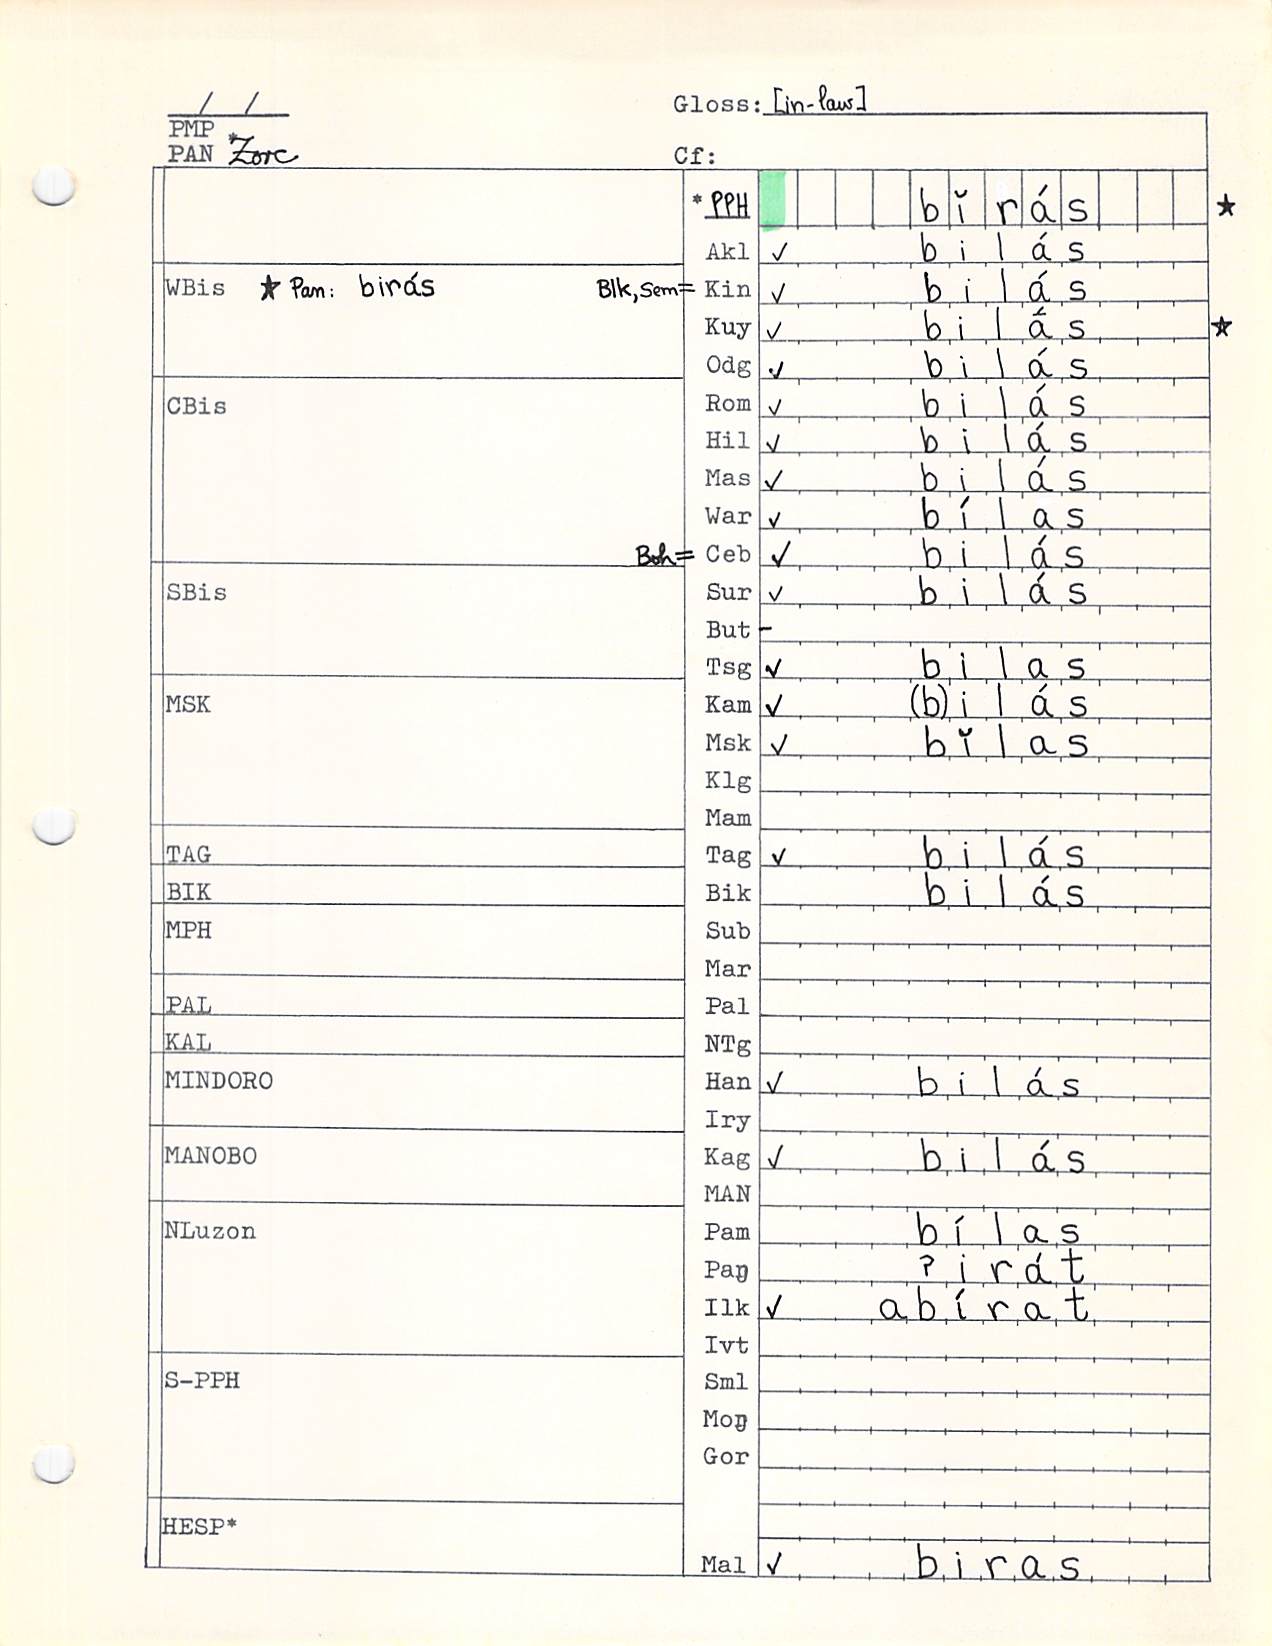 / /
Gloss: [in-law]
PMP
PAN *Zorc
Cf:
*PPH b ĭ r á s ★
Akl ✓ b i l á s
WBis ★ Pan: birás Blk, Sem= Kin ✓ b i l á s
Kuy ✓ b i l á s ★
Odg ✓ b i l á s
CBis Rom ✓ b i l á s
Hil ✓ b i l á s
Mas ✓ b i l á s
War ✓ b í l a s
Boh= Ceb ✓ b i l á s
SBis Sur ✓ b i l á s
But -
Tsg ✓ b i l a s
MSK Kam ✓ (b) i l á s
Msk ✓ b ĭ l a s
Klg
Mam
TAG Tag ✓ b i l á s
BIK Bik b i l á s
MPH Sub
Mar
PAL Pal
KAL NTg
MINDORO Han ✓ b i l á s
Iry
MANOBO Kag ✓ b i l á s
MAN
NLuzon Pam b í l a s
Paŋ ? i r á t
Ilk ✓ a b í r a t
Ivt
S-PPH Sml
Moŋ
Gor
HESP*
Mal ✓ b i r a s